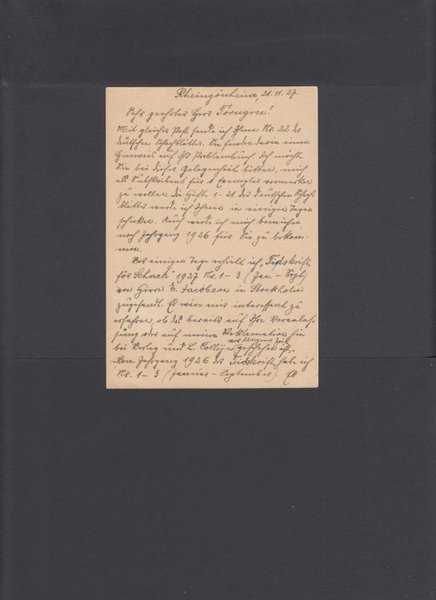 Rheingönheim, 21.11.27.
Sehr geehrter Herr Törngren!
Mit gleicher Post sende ich Ihnen No. 22 der
deutschen Schachblätter. Sie finden darin einen
Hinweis auf Ihr Problembuch. Ich möchte
Sie bei dieser Gelegenheit bitten, mich
als Subskribent für 1 Exemplar vormerken
zu wollen. Die Hefte 1-21 der Deutschen Schach-
blätter werde ich Ihnen in einigen Tagen
schicken. Auch werde ich mich bemühen
noch Jahrgang 1926 für Sie zu bekom-
men.
Vor einigen Tagen erhielt ich „Tidskrift
för Schack" 1927 No. 1-3 (Jan. - Sept)
von Herrn E. Jacobson in Stockholm
zugesandt. Es wäre mir interessant zu
erfahren ob das bereits auf Ihre Veranlas-
sung oder auf meine Reklamation hin
bei Verlag und L. Collijn vor längerer Zeit geschehen ist.
Vom Jahrgang 1926 der Tidskrift habe ich
No. 1-3 (Januar - September). Es